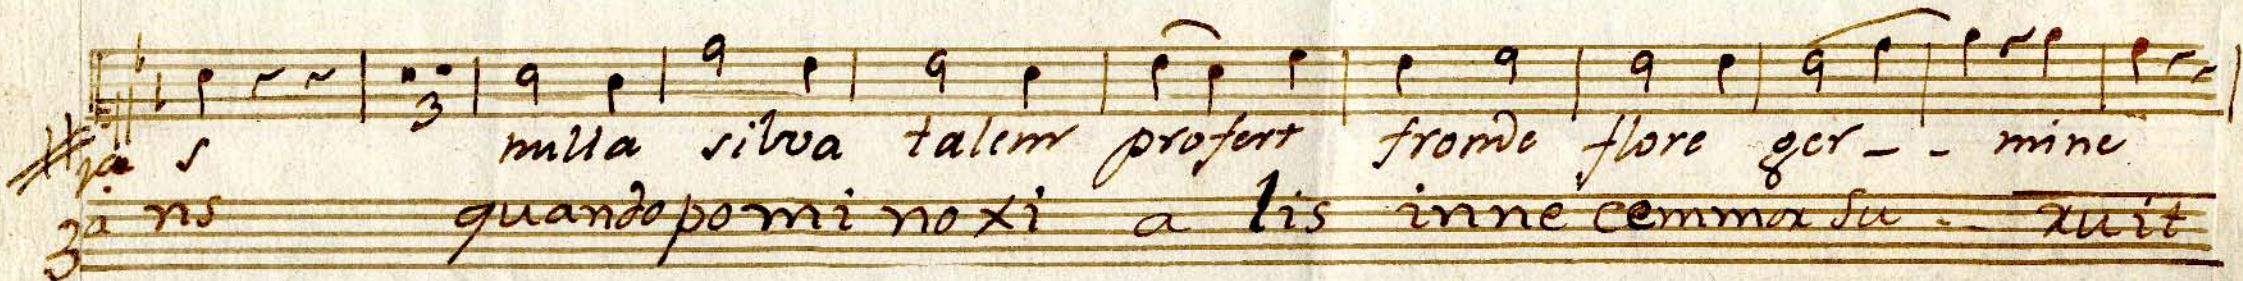 s nulla silva talem profert fronde flore ger - - mine
3a ns quando pomi noxi a lis in necem morsu - - ruit